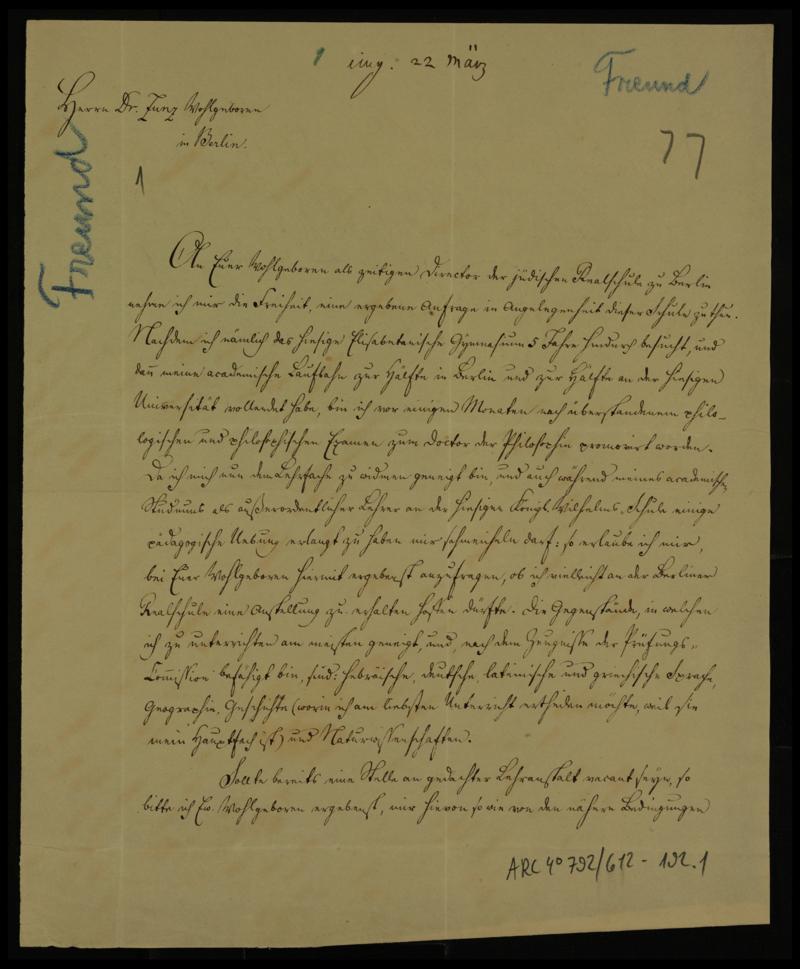 1 eing. 22 März
Freund
77
Herrn Dr. Zunz Wohlgeboren
in Berlin.
Freund
1
An Euer Wohlgeboren als zeitigen Director der jüdischen Realschule zu Berlin
nehme ich mir die Freiheit, eine ergebene Anfrage in Angelegenheit dieser Schule zu thun.
Nachdem ich nämlich das hiesige Elisabetanische Gymnasium 5 Jahre hindurch besucht, und
dañ meine academische Laufbahn zur Hälfte in Berlin und zur Hälfte an der hiesigen
Universität vollendet habe, bin ich vor einigen Monaten nach überstandenem philo-
logischen und philosophischen Examen zum Doctor der Philosophie promovirt worden.
Da ich mich nun dem Lehrfache zu widmen geneigt bin, und auch während meines academischen
Studiums als außerordentlicher Lehrer an der hiesigen Königl. Wilhelms-Schule einige
pädagogische Uebung erlangt zu haben mir schmeicheln darf: so erlaube ich mir,
bei Euer Wohlgeboren hiermit ergebenst anzufragen, ob ich vielleicht an der Berliner
Realschule eine Anstellung zu erhalten hoffen dürfte. Die Gegenstände, in welchen
ich zu unterrichten am meisten geneigt, und, nach dem Zeugnisse der Prüfungs-
Com̃ission befähigt bin, sind: hebräische, deutsche, lateinische und griechische Sprache,
Geographie, Geschichte (worin ich am liebsten Unterricht ertheilen möchte, weil sie
mein Hauptfach ist) und Naturwissenschaften.
Sollte bereits eine Stelle an gedachter Lehranstalt vacant seyn, so
bitte ich Ew. Wohlgeboren ergebenst, mir hievon so wie von den nähern Bedingungen
ARC 4° 792/G12-192.1